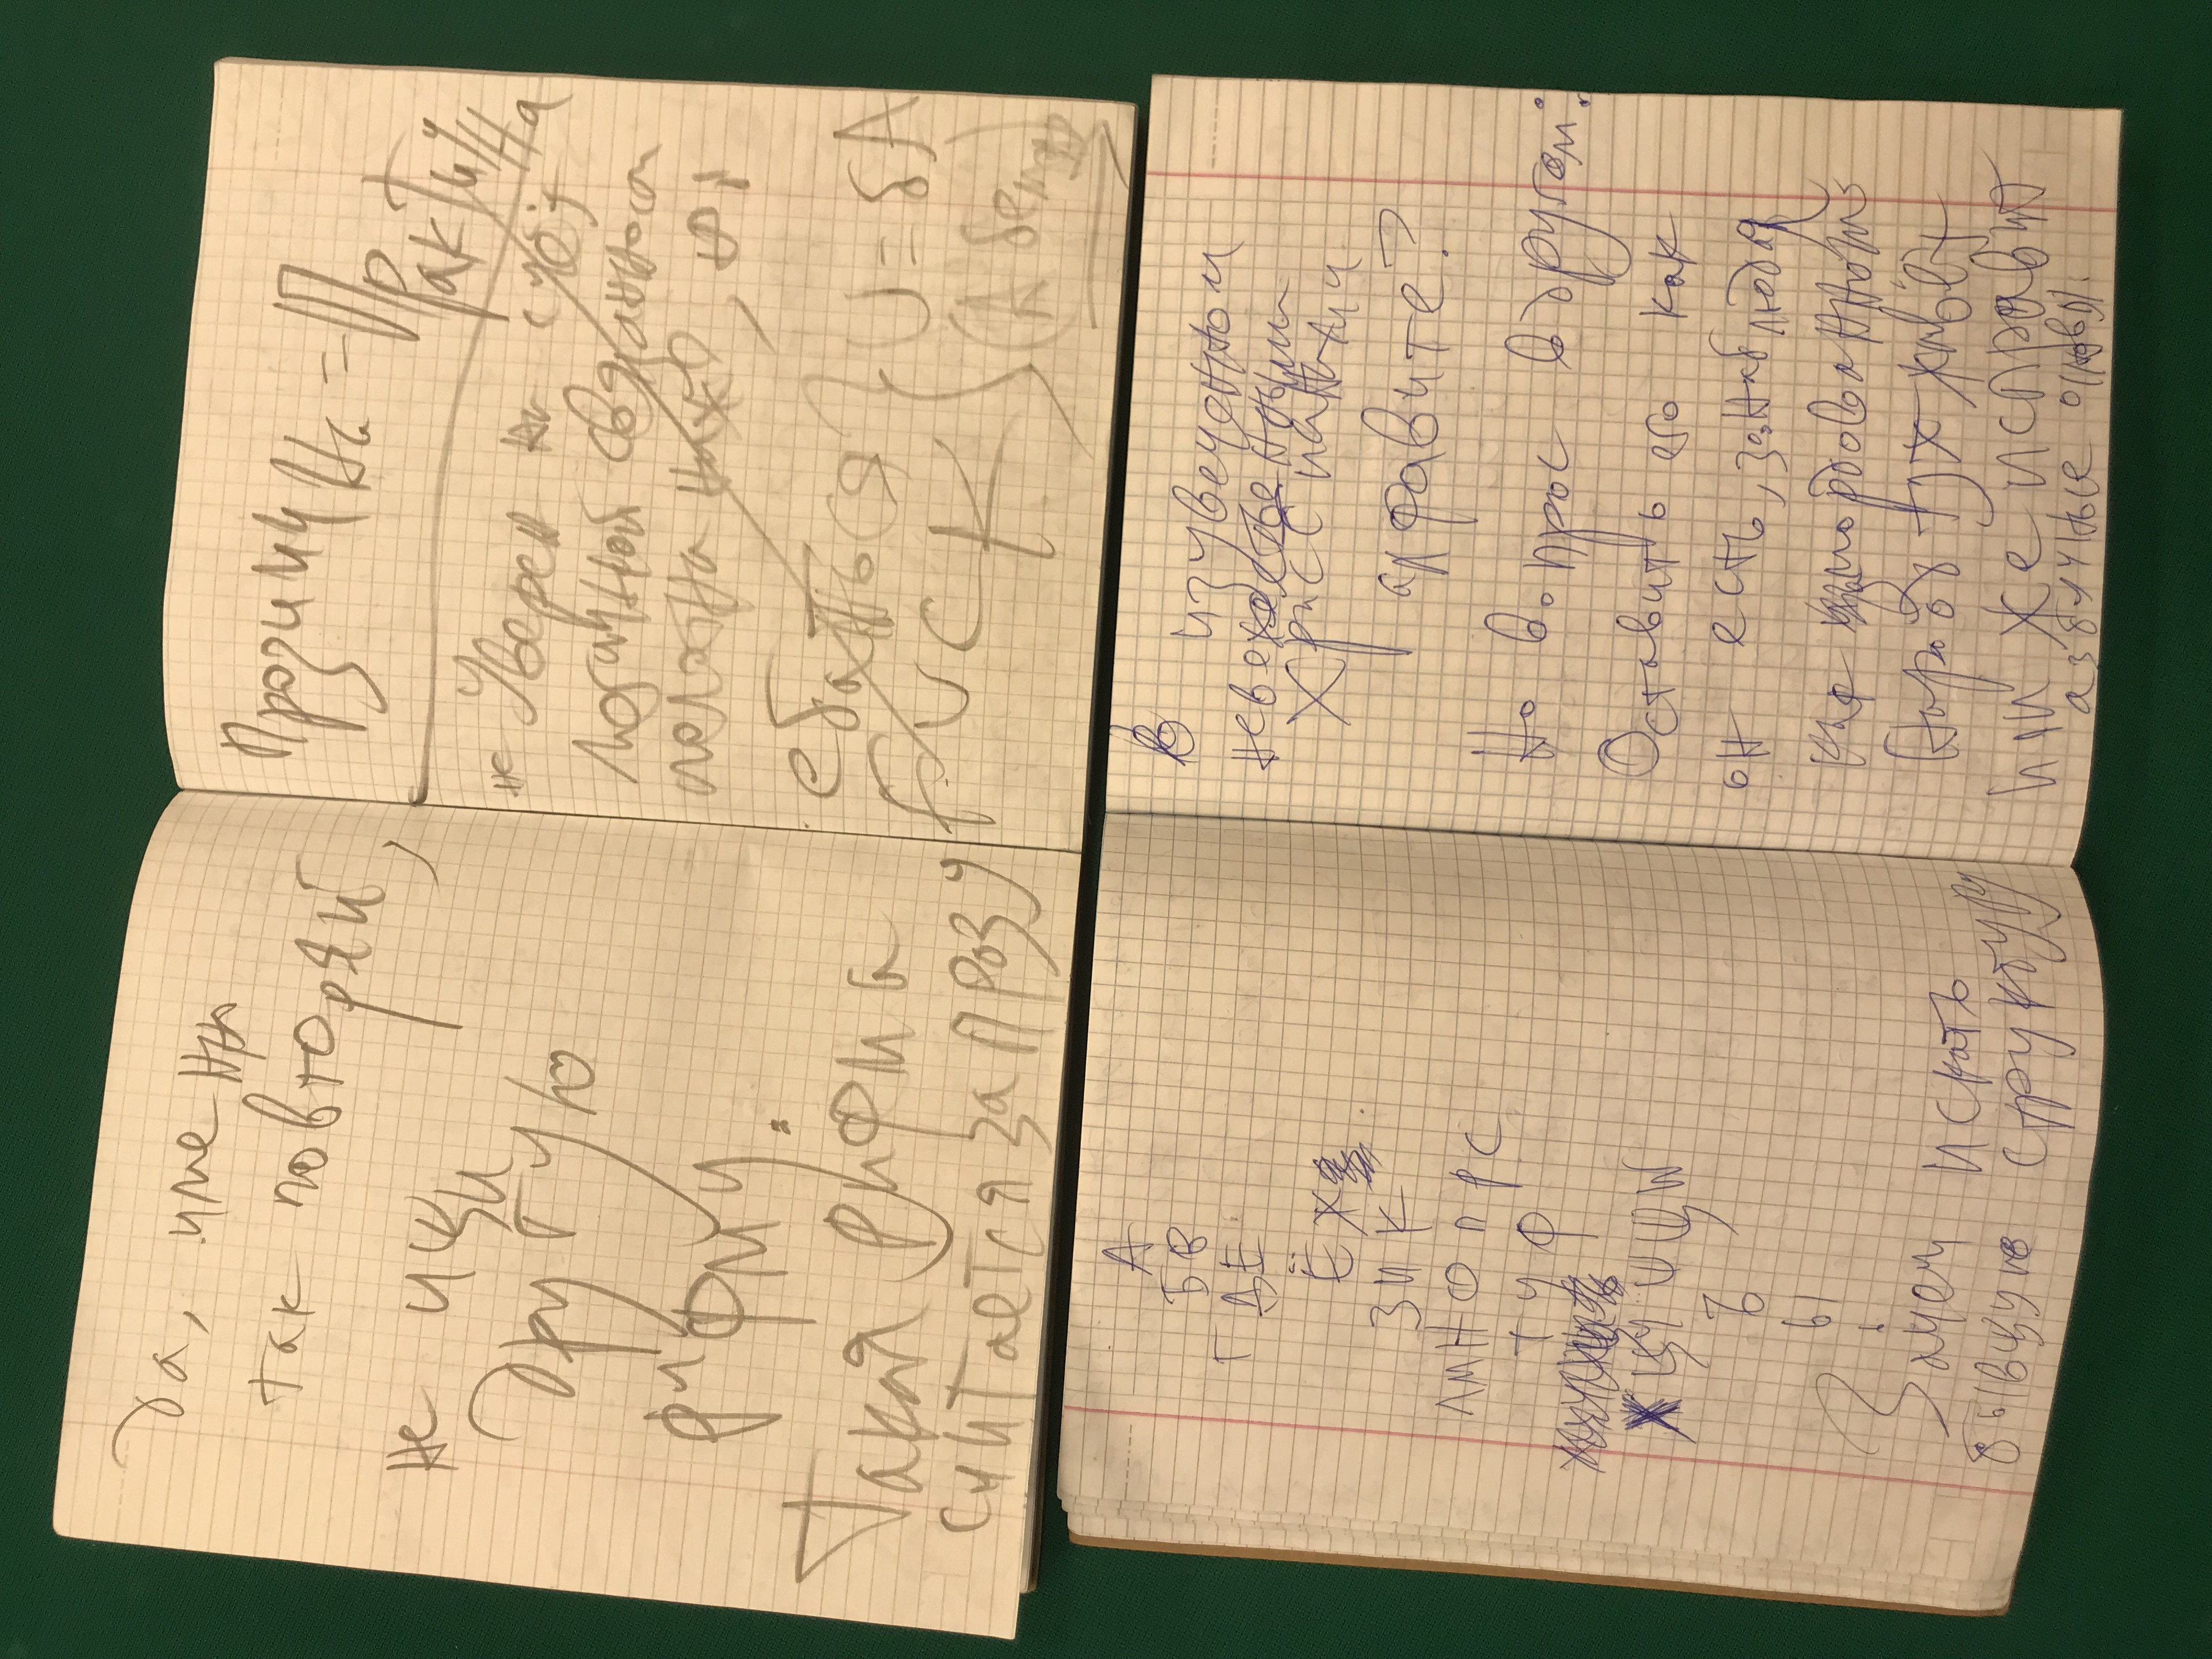 Да, именно
так повторяй,
не ищи
другую
рифму.
Такая рифма
считается за прозу
= Практична
не уверен на счёт
логичной связанности
ебаться
fuck
U = бА
(А бета)
А
БВ
ГДЕ
ЁЖ
ЗИК
ЛМНОПРС
ТУФ
ХЦЧШЩ
Ъ
Ы
Зачем искать
бывшую структуру
В изувеченном
невежественными
алфавите?
Но вопрос в другом:
Оставить его как
он есть, понаблюдая
как
народ тух живёт
или же исправит
азбучные основы.